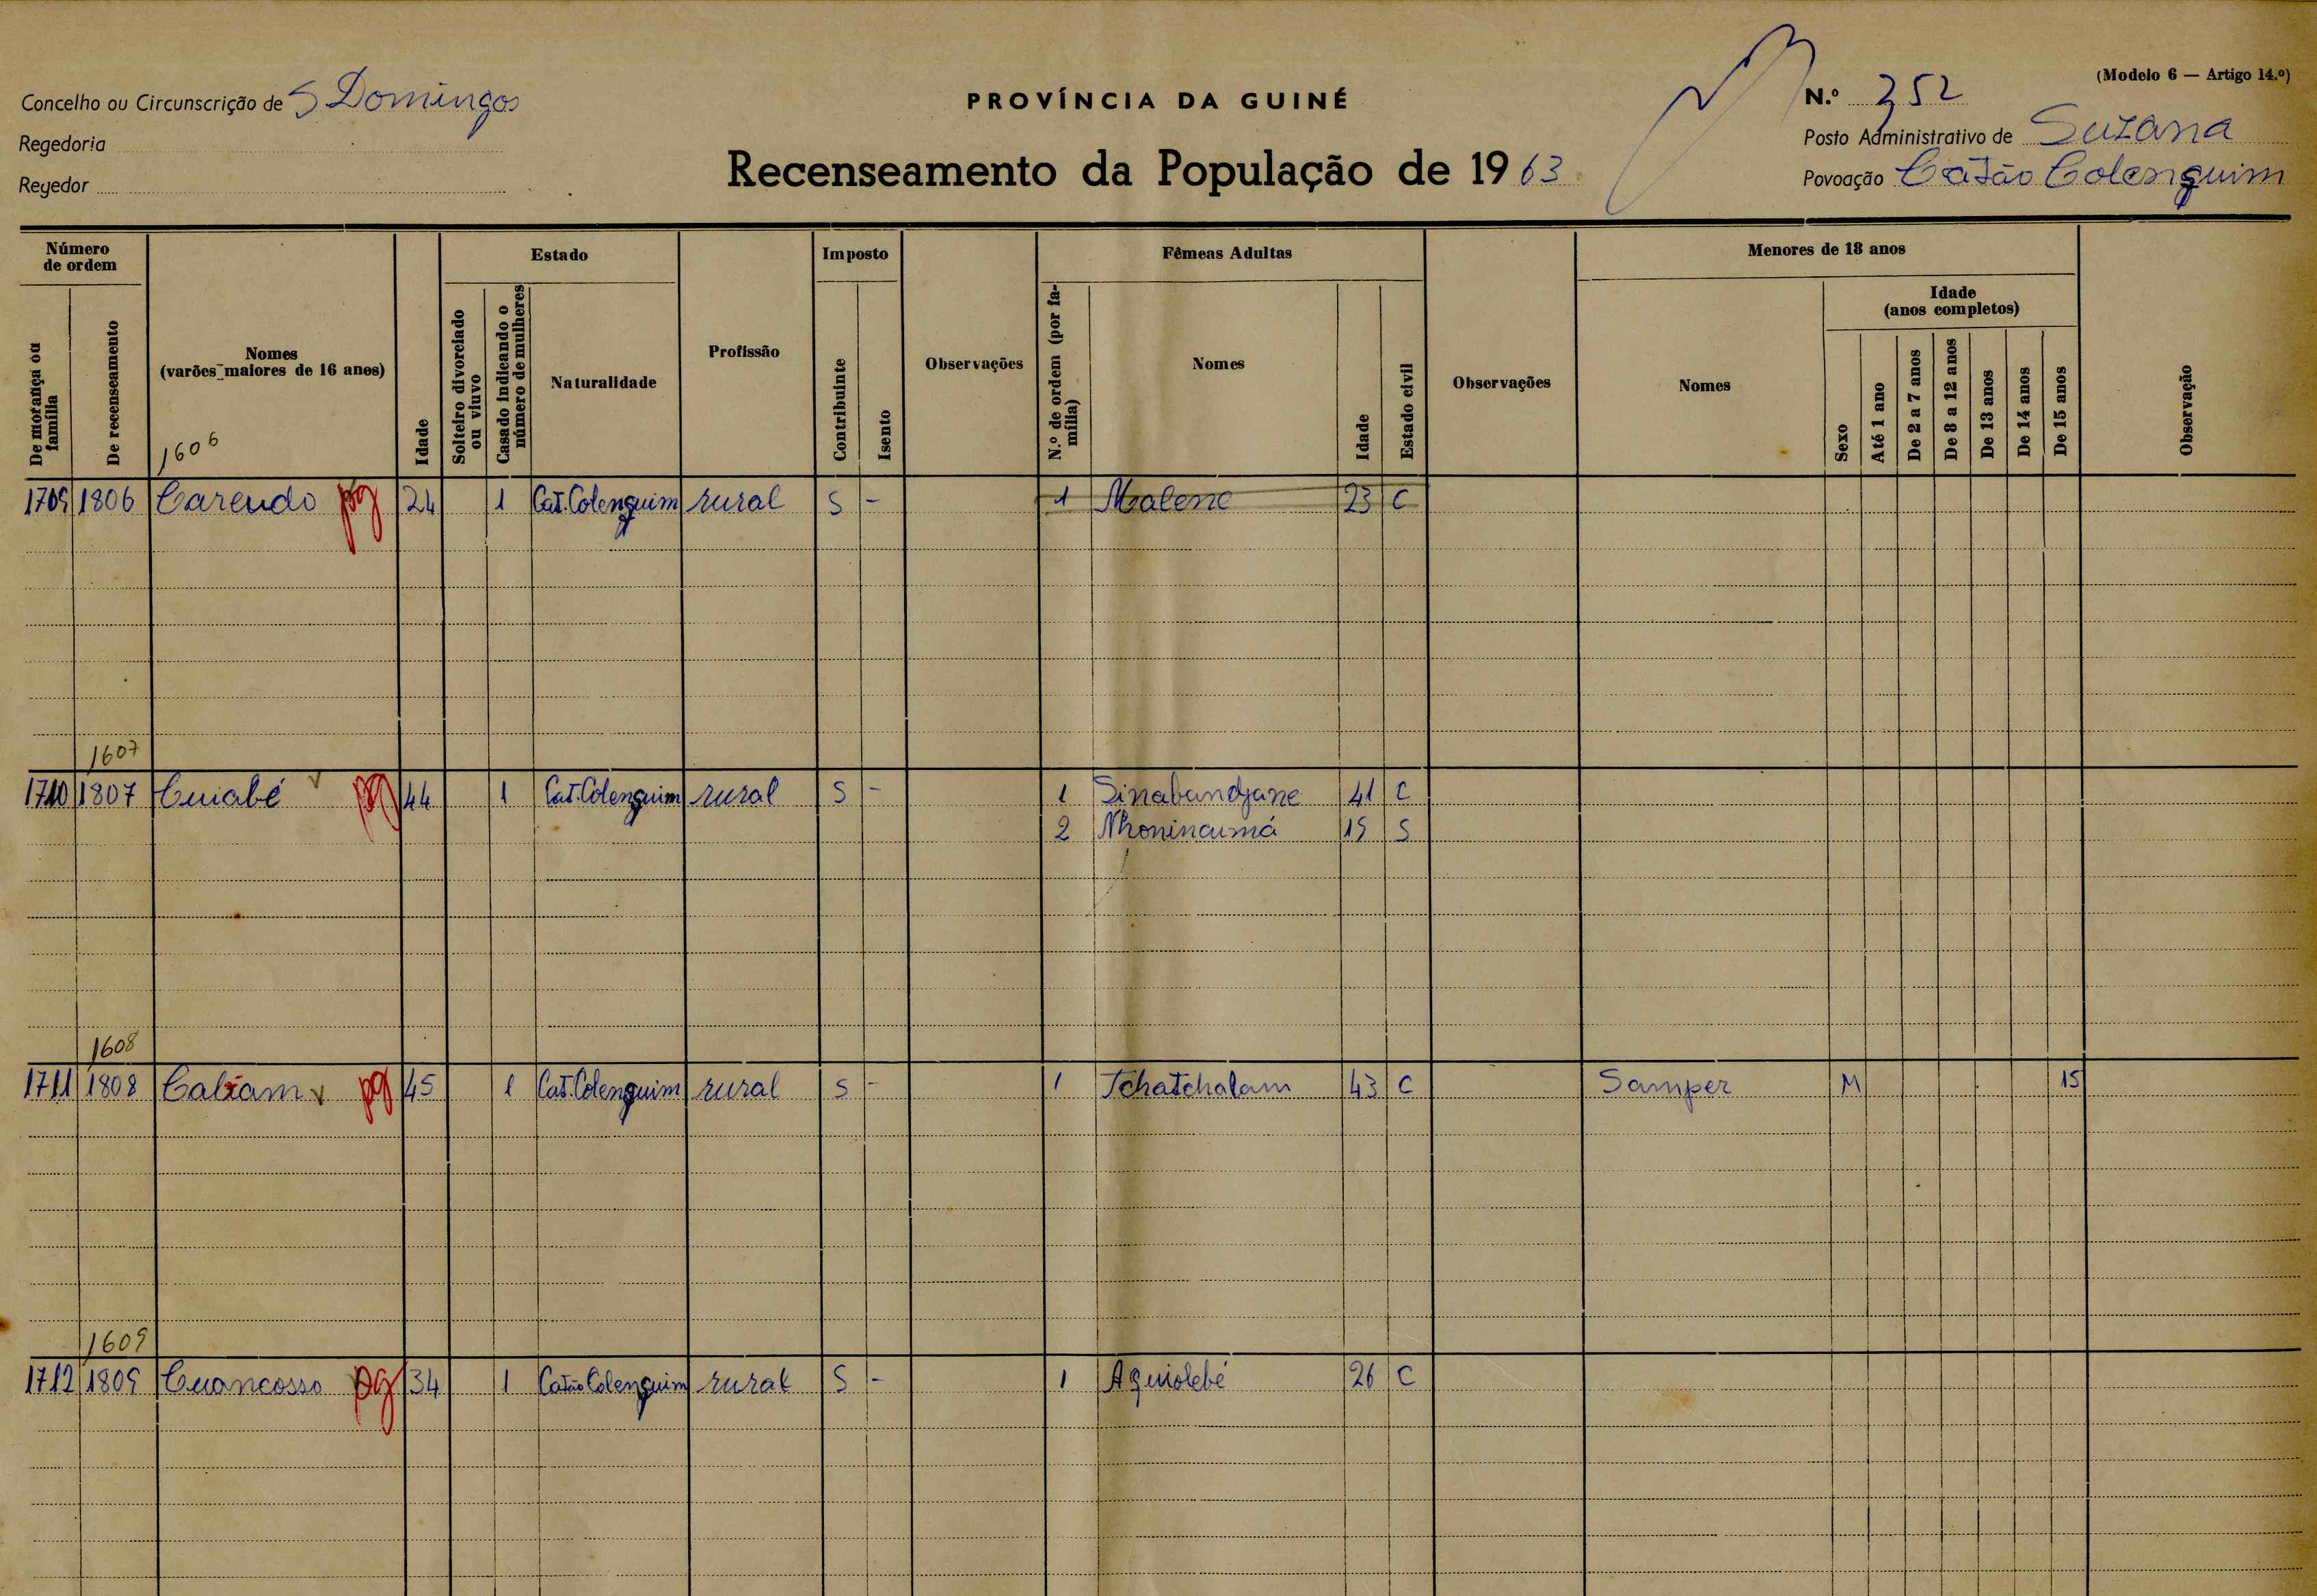 (Modelo 6 — Artigo 14.º)
Concelho ou Circunscrição de S Domingos
PROVÍNCIA DA GUINÉ
N.º 352
Regedoria
Posto Administrativo de Suzana
Regedor
Recenseamento da População de 1963
Povoação Catão Colenquim
Número de ordem
Estado
Imposto
Fêmeas Adultas
Menores de 18 anos
De morança ou família
De recenseamento
Nomes
(varões maiores de 16 anos)
Idade
Solteiro divorciado ou viuvo
Casado indicando o número de mulheres
Naturalidade
Profissão
Contribuinte
Isento
Observações
N.º de ordem (por família)
Nomes
Idade
Estado civil
Observações
Nomes
Idade
(anos completos)
Sexo
Até 1 ano
De 2 a 7 anos
De 8 a 12 anos
De 13 anos
De 14 anos
De 15 anos
Observação
1606
1709 1806 Carendo pg 24 1 Cat. Colenquim rural S - 1 Malene 23 C
1607
1710 1807 Cuiabé pg 44 1 Cat. Colenquim rural S - 1 Sinabandjane 41 C
2 Nhonincumá 19 S
1608
1711 1808 pg 45 1 Cat. Colenquim rural S - 1 Tchatchalam 43 C Samper M 15
1609
1712 1809 Cuancosso pg 34 1 Catão Colenquim rural S - 1 Aquiolebé 26 C